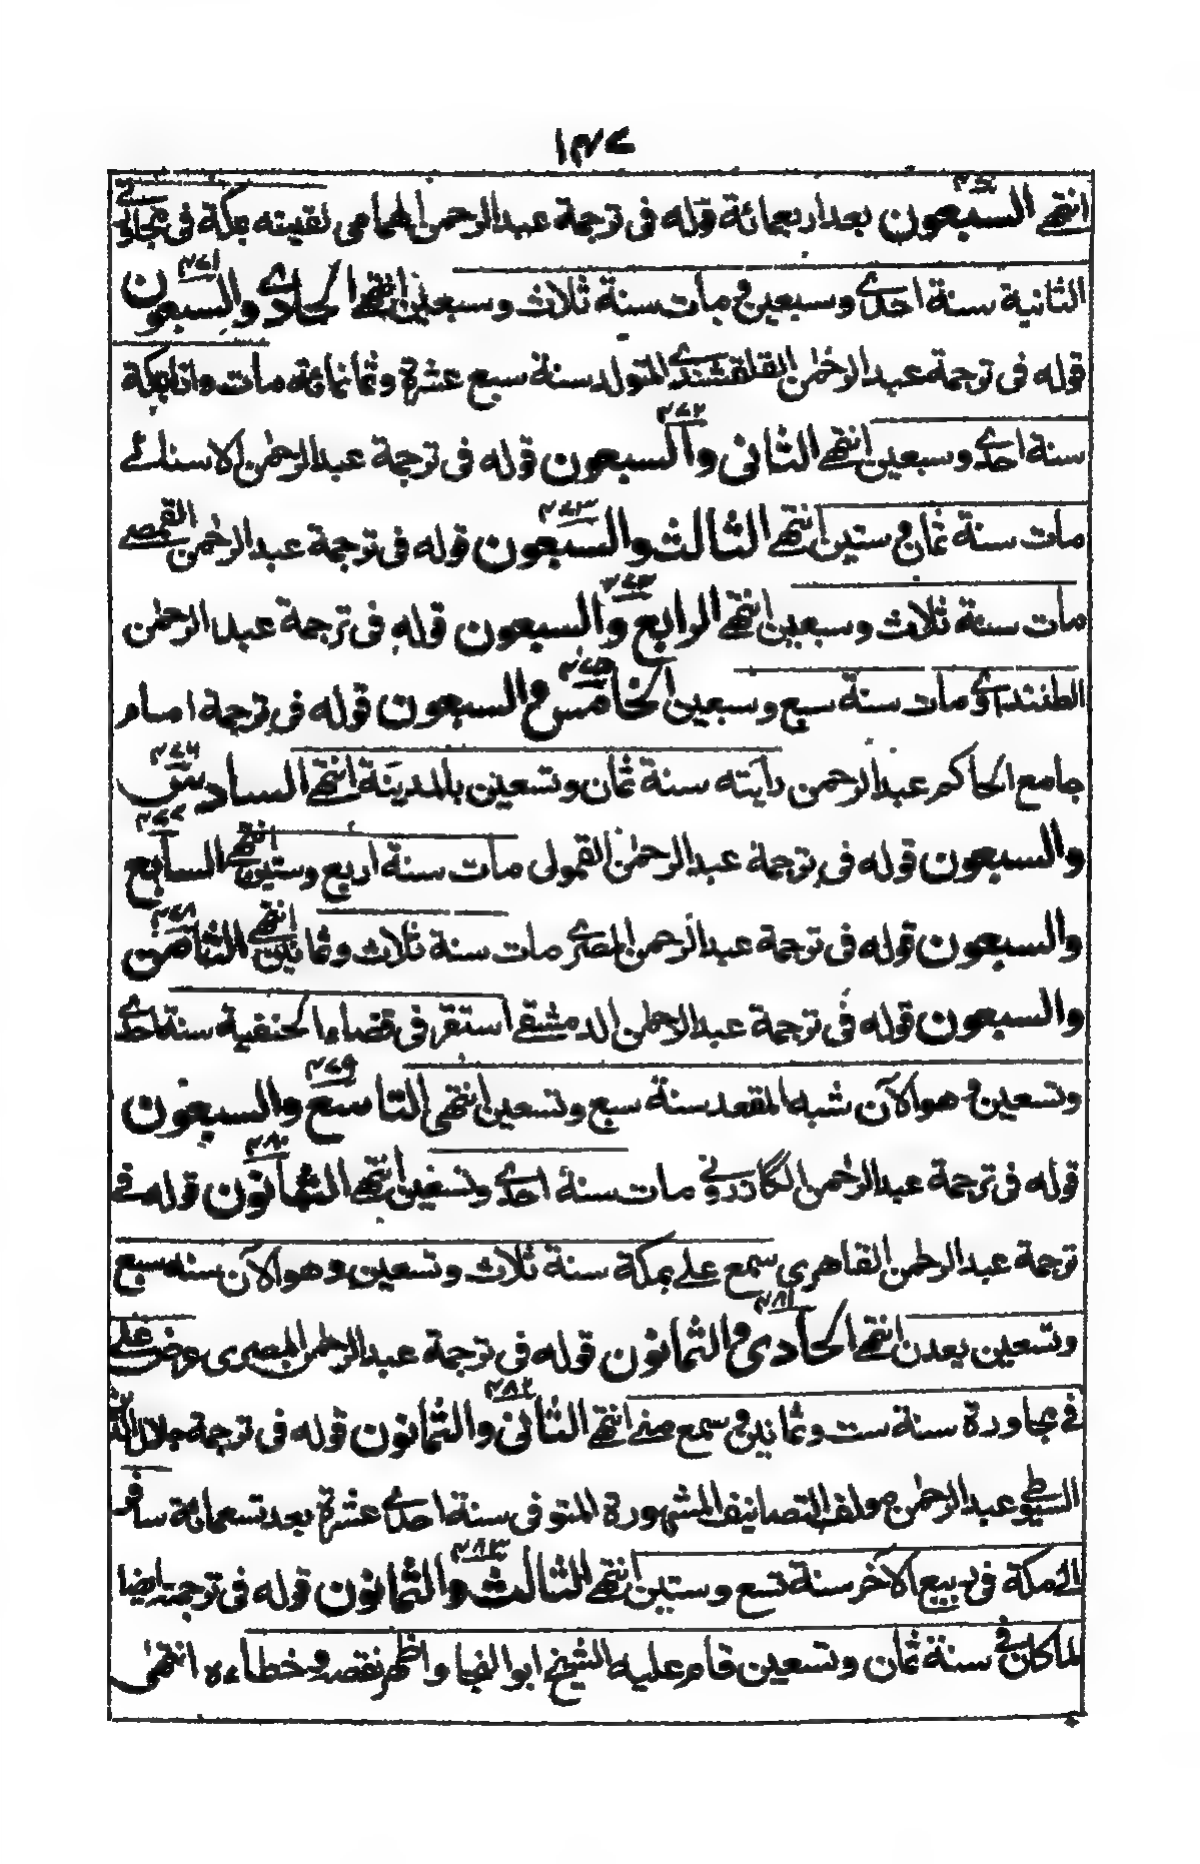 ١٣٧
انتهى السبعون بعد اربعمائة قوله فى ترجمة عبد الرحمن الحمامى لقيته بمكة فى مجاورتى
٤٧٠
الثانية سنة احدى وسبعين و مات سنة ثلاث وسبعين انتهى الحادى والسبعون
٤٧١
قوله فى ترجمة عبد الرحمن القلقشندى المتولد سنة سبع عشرة وثمانمائة مات وانا بمكة
سنة احدى وسبعين انتهى الثانى والسبعون قوله فى ترجمة عبد الرحمن الاسنائى
٤٧٢
مات سنة ثمان و ستين انتهى الثالث والسبعون قوله فى ترجمة عبد الرحمن القمصى
٤٧٣
مات سنة ثلاث وسبعين انتهى الرابع والسبعون قوله فى ترجمة عبد الرحمن
٤٧٤
الطنتدائى ومات سنة سبع وسبعين الخامس والسبعون قوله فى ترجمة امام
٤٧٥
جامع الحاكم عبد الرحمن رايته سنة ثمان وتسعين بالمدينة انتهى السادس
٤٧٦
والسبعون قوله فى ترجمة عبد الرحمن القمولى مات سنة اربع وستين انتهى السابع
٤٧٧
والسبعون قوله فى ترجمة عبد الرحمن المصرى مات سنة ثلاث وثمانين انتهى الثامن
٤٧٨
والسبعون قوله فى ترجمة عبد الرحمن الدمشقى استقر فى قضاء الحنفية سنة احدى
وتسعين و هو الآن شبه المقعد سنة سبع وتسعين انتهى التاسع والسبعون
٤٧٩
قوله فى ترجمة عبد الرحمن الكازرونى مات سنة احدى وتسعين انتهى الثمانون قوله فى
٤٨٠
ترجمة عبد الرحمن القاهرى سمع على بمكة سنة ثلاث وتسعين وهو الآن سنه سبع
وتسعين بعدن انتهى الحادى والثمانون قوله فى ترجمة عبد الرحمن المصرى وعرض على
٤٨١
فى مجاورة سنة ست وثمانين و سمع منى انتهى الثانى والثمانون قوله فى ترجمة جلال الدين
٤٨٢
السيوطى عبد الرحمن مولف التصانيف المشهورة المتوفى سنة احدى عشرة بعد تسعمائة سافر
الى مكة فى ربيع الآخر سنة تسع وستين انتهى الثالث والثمانون قوله فى ترجمته ايضا
٤٨٣
لما كان فى سنة ثمان وتسعين قام عليه الشيخ ابو النجا واظهر نقصه وخطاءه انتهى